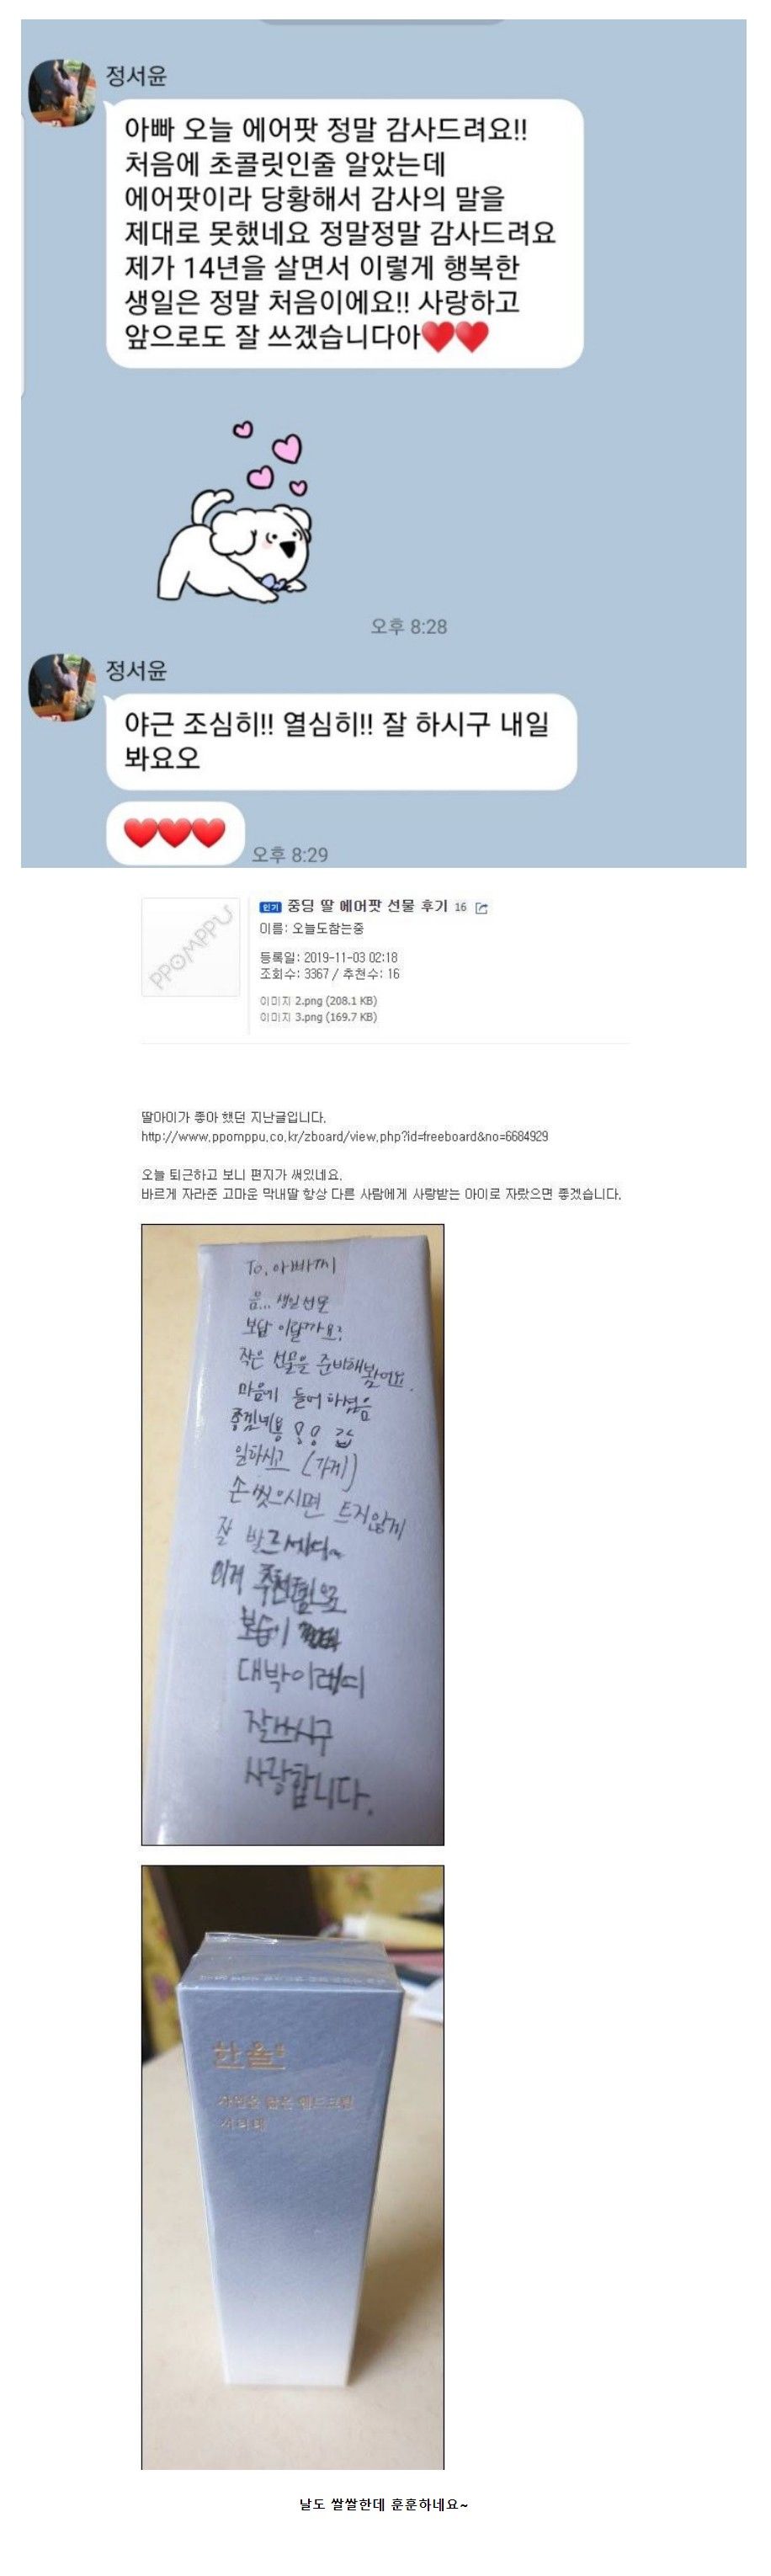 정서윤
아빠 오늘 에어팟 정말 감사드려요!!
처음에 초콜릿인줄 알았는데
에어팟이라 당황해서 감사의 말을
제대로 못했네요 정말정말 감사드려요
제가 14년을 살면서 이렇게 행복한
생일은 정말 처음이에요!! 사랑하고
앞으로도 잘 쓰겠습니다아❤️❤️
오후 8:28
정서윤
야근 조심히!! 열심히!! 잘 하시구 내일
봐요오
❤️❤️❤️
오후 8:29
PPOMPPU
인기 중딩 딸 에어팟 선물 후기 16
이름: 오늘도참는중
등록일: 2019-11-03 02:18
조회수: 3367 / 추천수: 16
이미지 2.png (208.1 KB)
이미지 3.png (169.7 KB)
딸아이가 좋아 했던 지난글입니다.
http://www.ppomppu.co.kr/zboard/view.php?id=freeboard&no=6684929
오늘 퇴근하고 보니 편지가 써있네요.
바르게 자라준 고마운 막내딸 항상 다른 사람에게 사랑받는 아이로 자랐으면 좋겠습니다.
To. 아빠찌
음... 생일선물
보답 이랄까요?
작은 선물을 준비해봤어요.
마음에 들어하셨음
좋겠네용
일하시고 (가게)
손 씻으시면 트지않게
잘 바르세영~
이게 추천템으로
보습이
대박이래띠
잘쓰시구
사랑합니다.
한율
자연을 닮은 핸드크림
서리태
날도 쌀쌀한데 훈훈하네요~